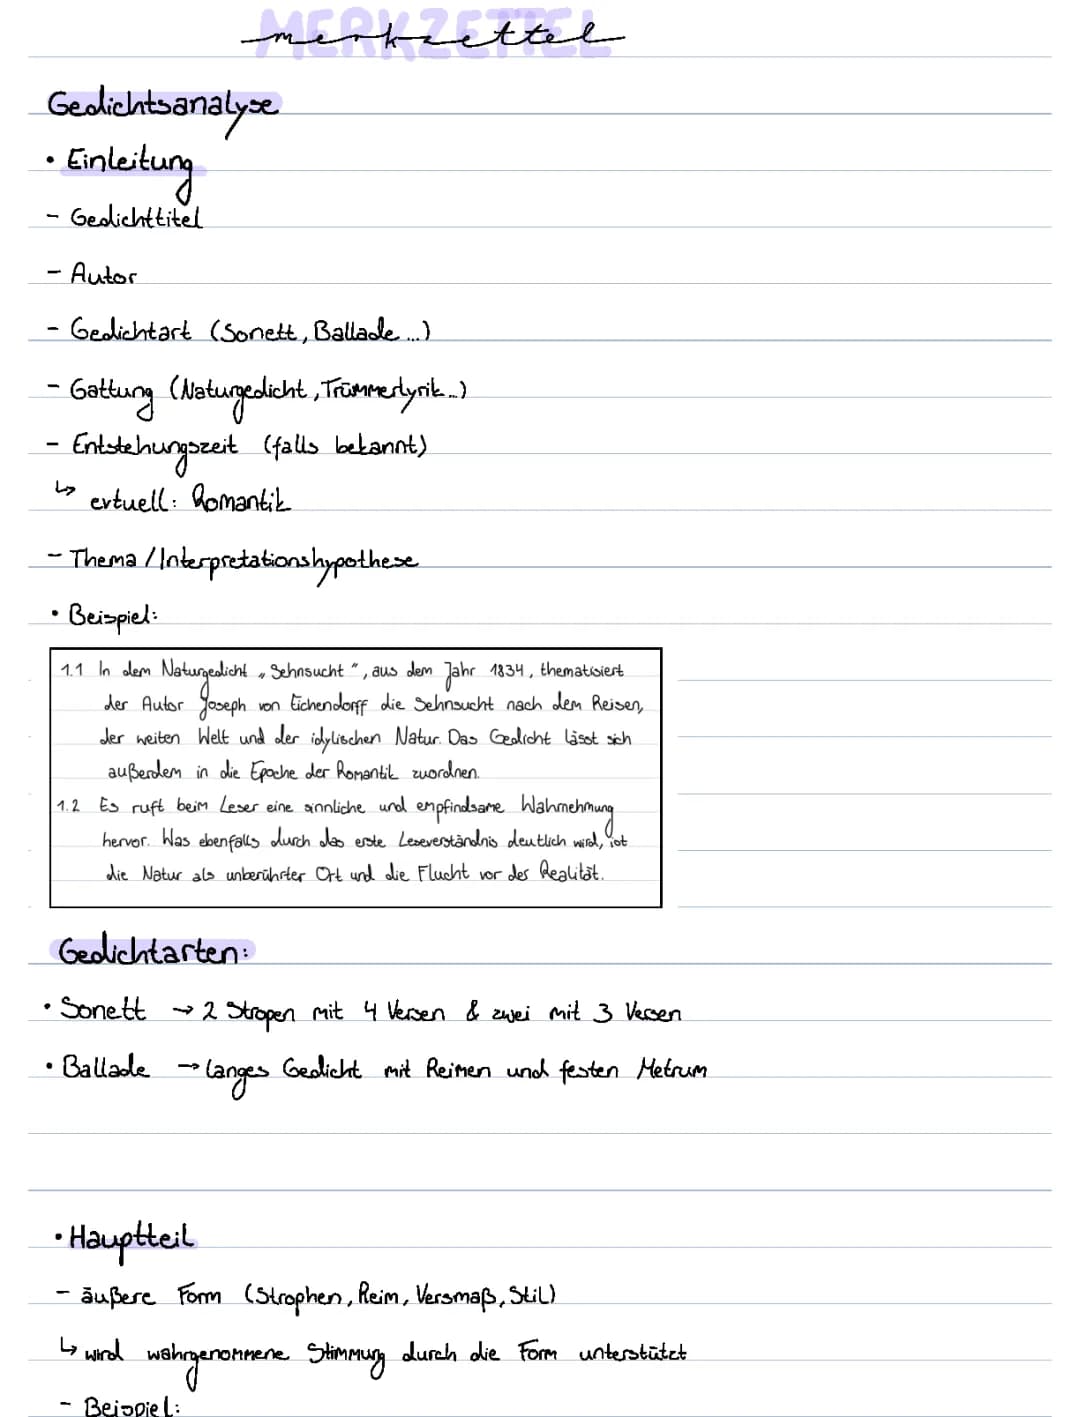 MERKZETTEL
merkzettel
Gedichtsanalyse
• Einleitung
- Gedichttitel
- Autor
- Gedichtart (Sonett, Ballade...)
- Gattung (Naturgedicht, Trümmerlyrik...)
- Entstehungszeit (falls bekannt)
↳ evtuell: Romantik
- Thema / Interpretationshypothese
• Beispiel:
1.1 In dem Naturgedicht „Sehnsucht“, aus dem Jahr 1834, thematisiert
der Autor Joseph von Eichendorff die Sehnsucht nach dem Reisen,
der weiten Welt und der idylischen Natur. Das Gedicht lässt sich
außerdem in die Epoche der Romantik zuordnen.
1.2 Es ruft beim Leser eine sinnliche und empfindsame Wahrnehmung
hervor. Was ebenfalls durch das erste Leseverständnis deutlich wird, ist
die Natur als unberührter Ort und die Flucht vor des Realität.
Gedichtarten:
• Sonett → 2 Stropen mit 4 Versen & zwei mit 3 Versen
• Ballade → langes Gedicht mit Reimen und festen Metrum
• Hauptteil
- äußere Form (Strophen, Reim, Versmaß, Stil)
↳ wird wahrgenommene Stimmung durch die Form unterstützt
- Beispiel: